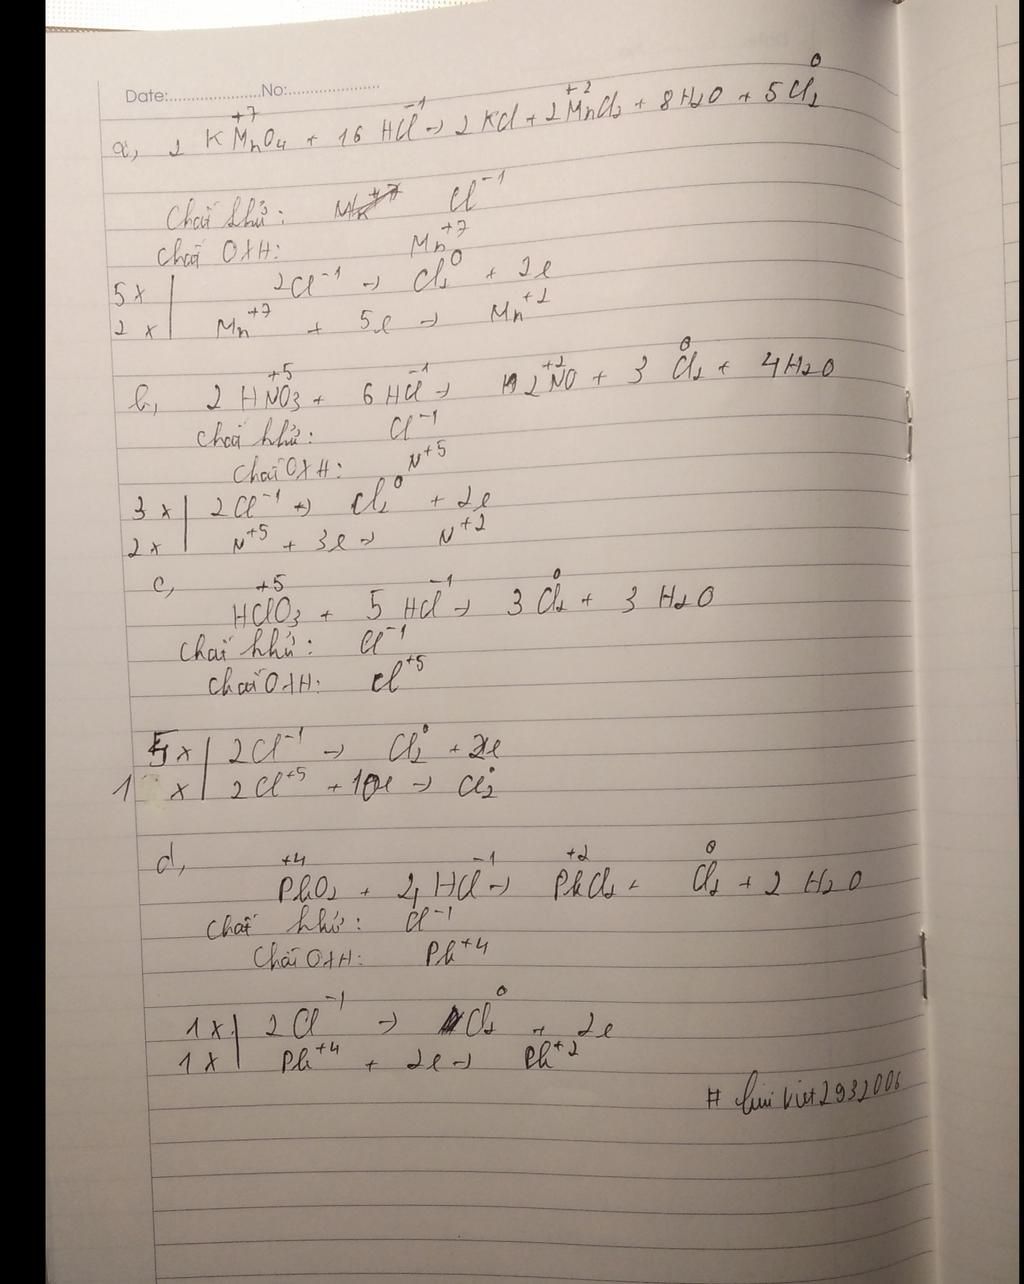 Date:....................No:....................
a, 2 KMnO4 + 16 HCl → 2 KCl + 2 MnCl2 + 8 H2O + 5 Cl2
+7 -1 +2 0
Chất khử: Cl⁻¹
Chất OXH: Mn⁺⁷
5 x | 2Cl⁻¹ → Cl2⁰ + 2e
2 x | Mn⁺⁷ + 5e → Mn⁺²
+5 -1 +2 0
b, 2 HNO3 + 6 HCl → 2 NO + 3 Cl2 + 4 H2O
Chất khử: Cl⁻¹
Chất OXH: N⁺⁵
3 x | 2Cl⁻¹ → Cl2⁰ + 2e
2 x | N⁺⁵ + 3e → N⁺²
c, +5 -1 0
HClO3 + 5 HCl → 3 Cl2 + 3 H2O
Chất khử: Cl⁻¹
Chất OXH: Cl⁺⁵
5 x | 2Cl⁻¹ → Cl2⁰ + 2e
1 x | 2Cl⁺⁵ + 10e → Cl2⁰
d, +4 -1 +2 0
PbO2 + 4 HCl → PbCl2 + Cl2 + 2 H2O
Chất khử: Cl⁻¹
Chất OXH: Pb⁺⁴
1 x | 2Cl⁻¹ → Cl2⁰ + 2e
1 x | Pb⁺⁴ + 2e → Pb⁺²